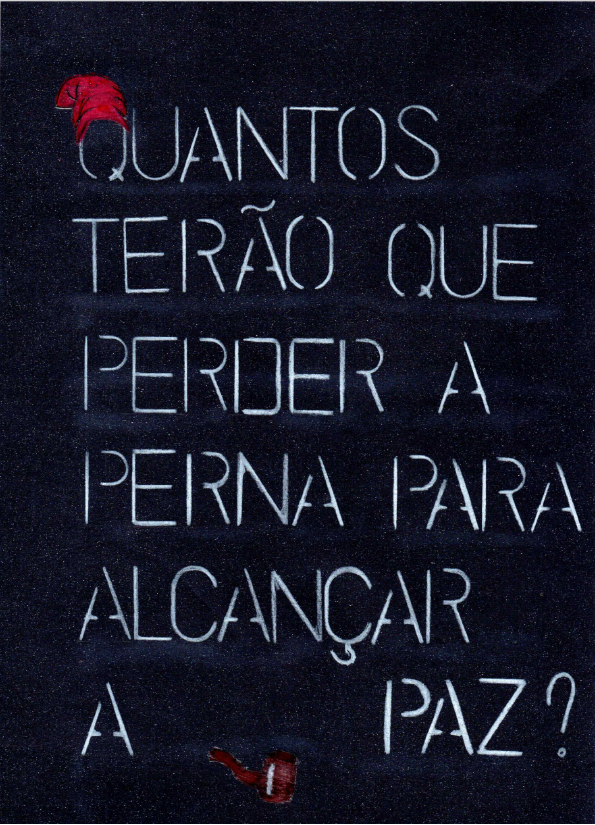 QUANTOS
TERÃO QUE
PERDER A
PERNA PARA
ALCANÇAR
A PAZ?